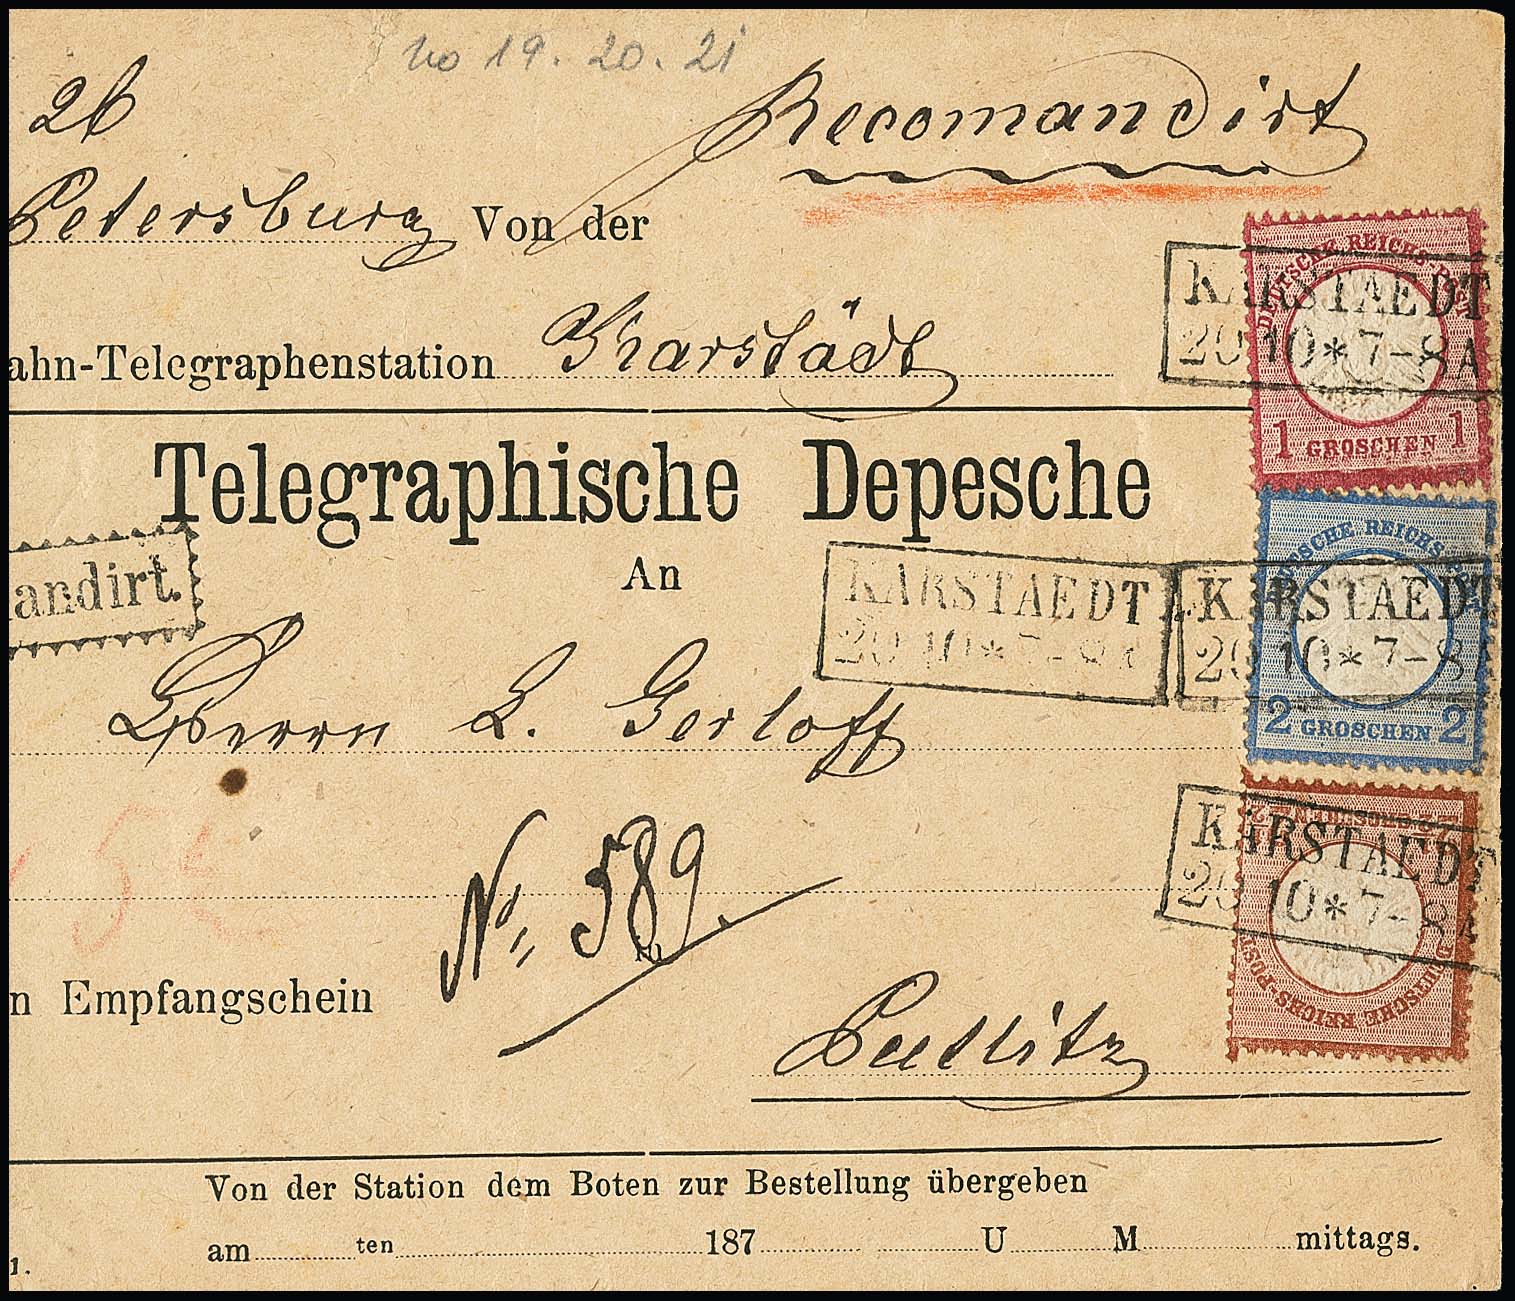 No 19. 20. 21
26
Recomandirt
Petersburg Von der
ahn-Telegraphenstation Karstädt
Telegraphische Depesche
An
andirt.
Herrn L. Gerloff
No 589.
in
n Empfangschein
Putlitz
Von der Station dem Boten zur Bestellung übergeben
am ten 187 U M mittags.
1.
DEUTSCHE REICHS-POST
KARSTAEDT
20 10 * 7-8A
1 GROSCHEN 1
DEUTSCHE REICHS-POST
KARSTAEDT
20 10 * 7-8A
KARSTAEDT
20 10 * 7-8
2 GROSCHEN 2
KARSTAEDT
20 10 * 7-8A
DEUTSCHE REICHS-POST